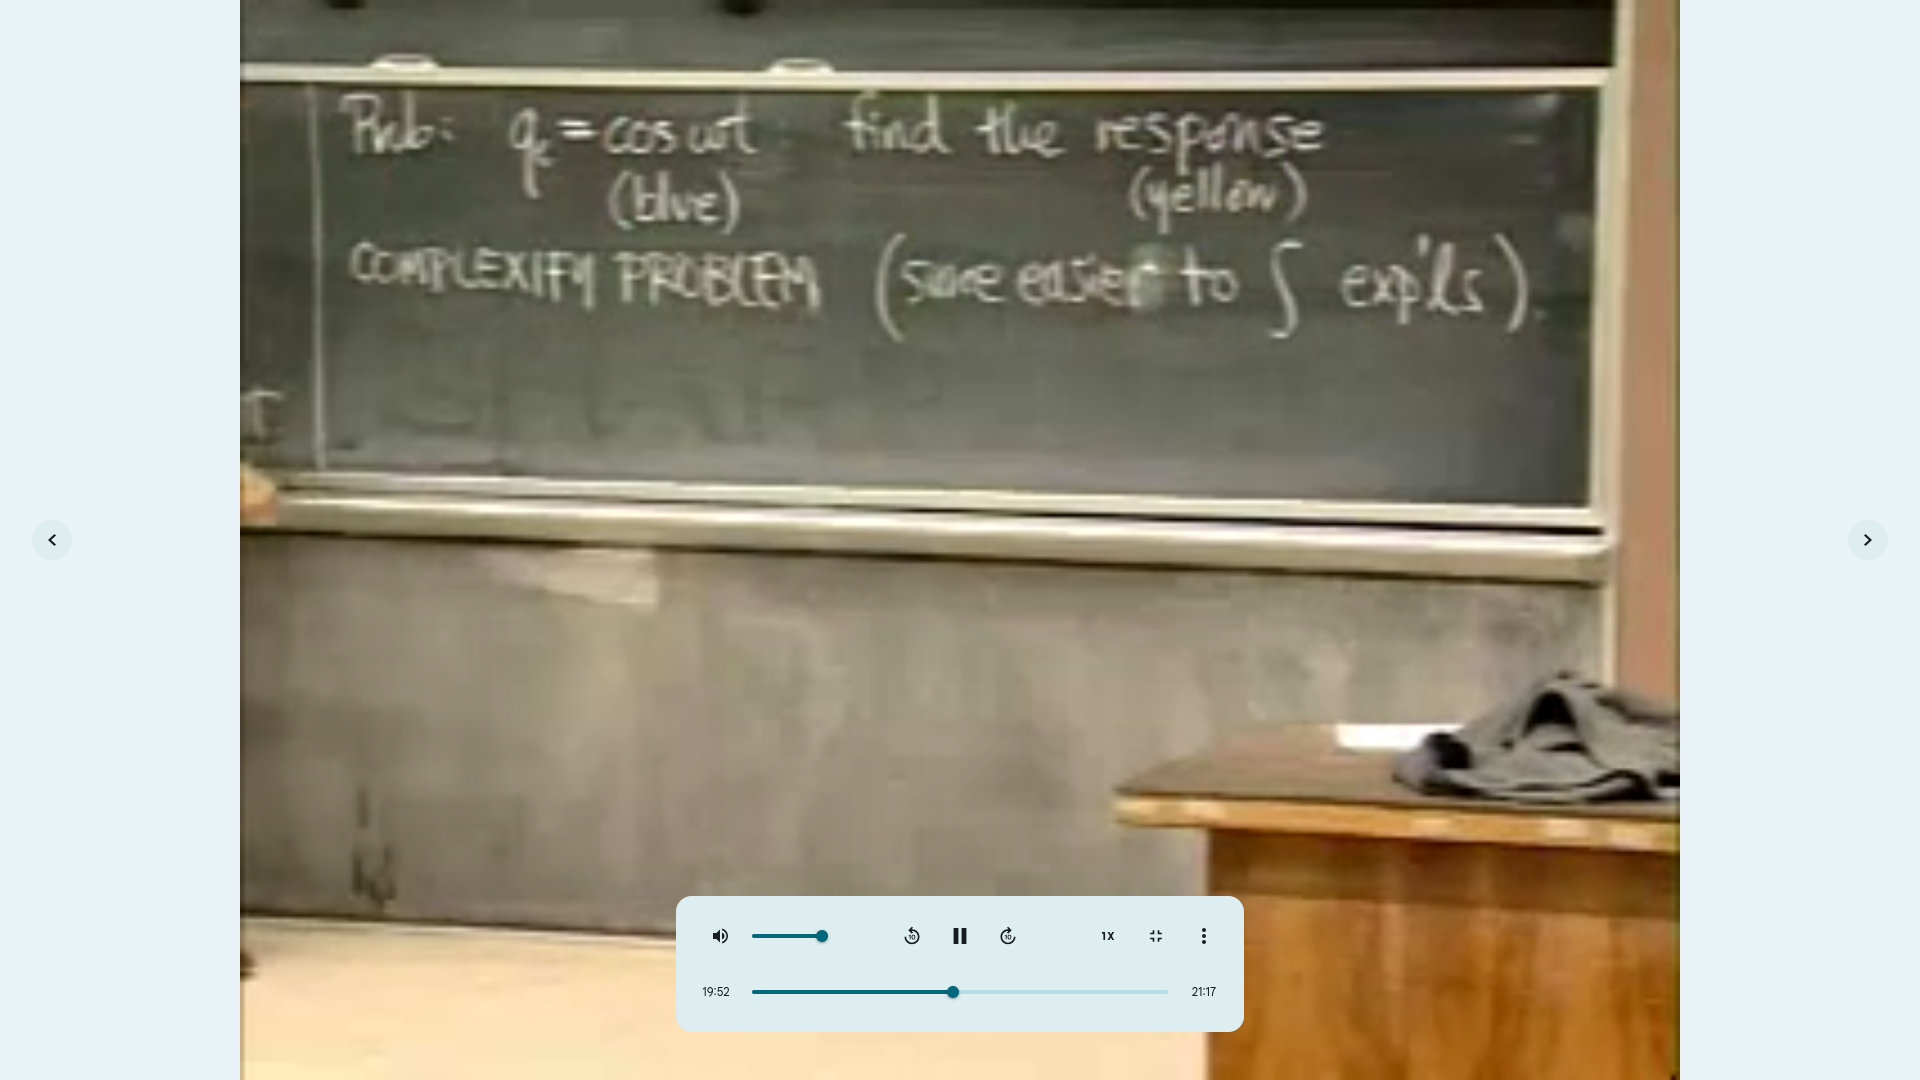 Prob: qe = cos ωt find the response
(blue) (yellow)
COMPLEXIFY PROBLEM (since easier to ∫ exp'ls).
I
1X
19:52 21:17